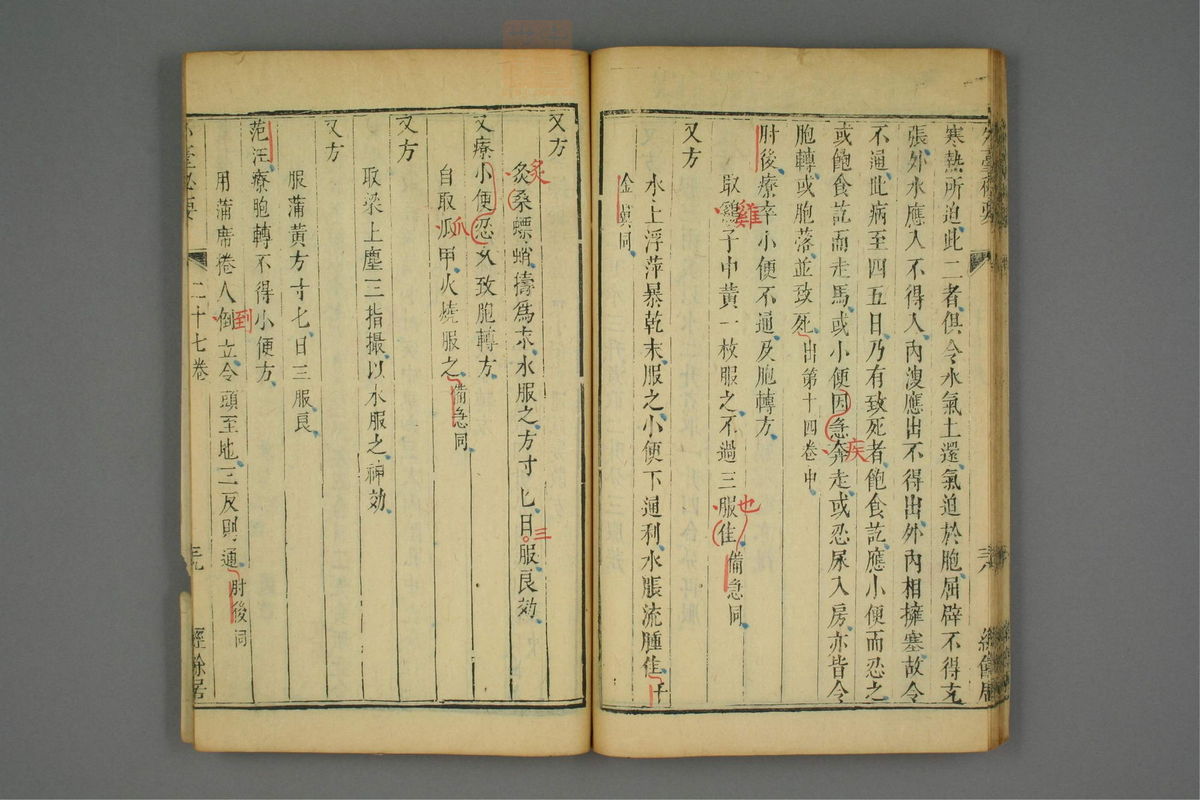 寒熱所迫此二者俱令水氣上還氣迫於胞屈辟不得充
張外水應入不得入内溲應出不得出外内相擁塞故令
不通此病至四五日乃有致死者飽食訖應小便而忍之
或飽食訖而走馬或小便因急奔走或忍尿入房亦皆令
疾
胞轉或胞落並致死出第十四卷中
肘後療卒小便不通及胞轉方
取鷄子中黄一枚服之不過三服佳備急同
雞
也
又方
水上浮萍暴乾末服之小便下通利水脹流腫佳千
金翼同
三八
又方
炙桑螵蛸擣爲末水服之方寸匕日服良効
炙
三
又療小便忍久致胞轉方
自取瓜甲火燒服之備急同
爪
取梁上塵三指撮以水服之神効
又方
又方
服蒲黄方寸匕日三服良
范汪療胞轉不得小便方
用蒲席捲人倒立令頭至地三反則通肘後同
到
二十七卷
三九
經餘居